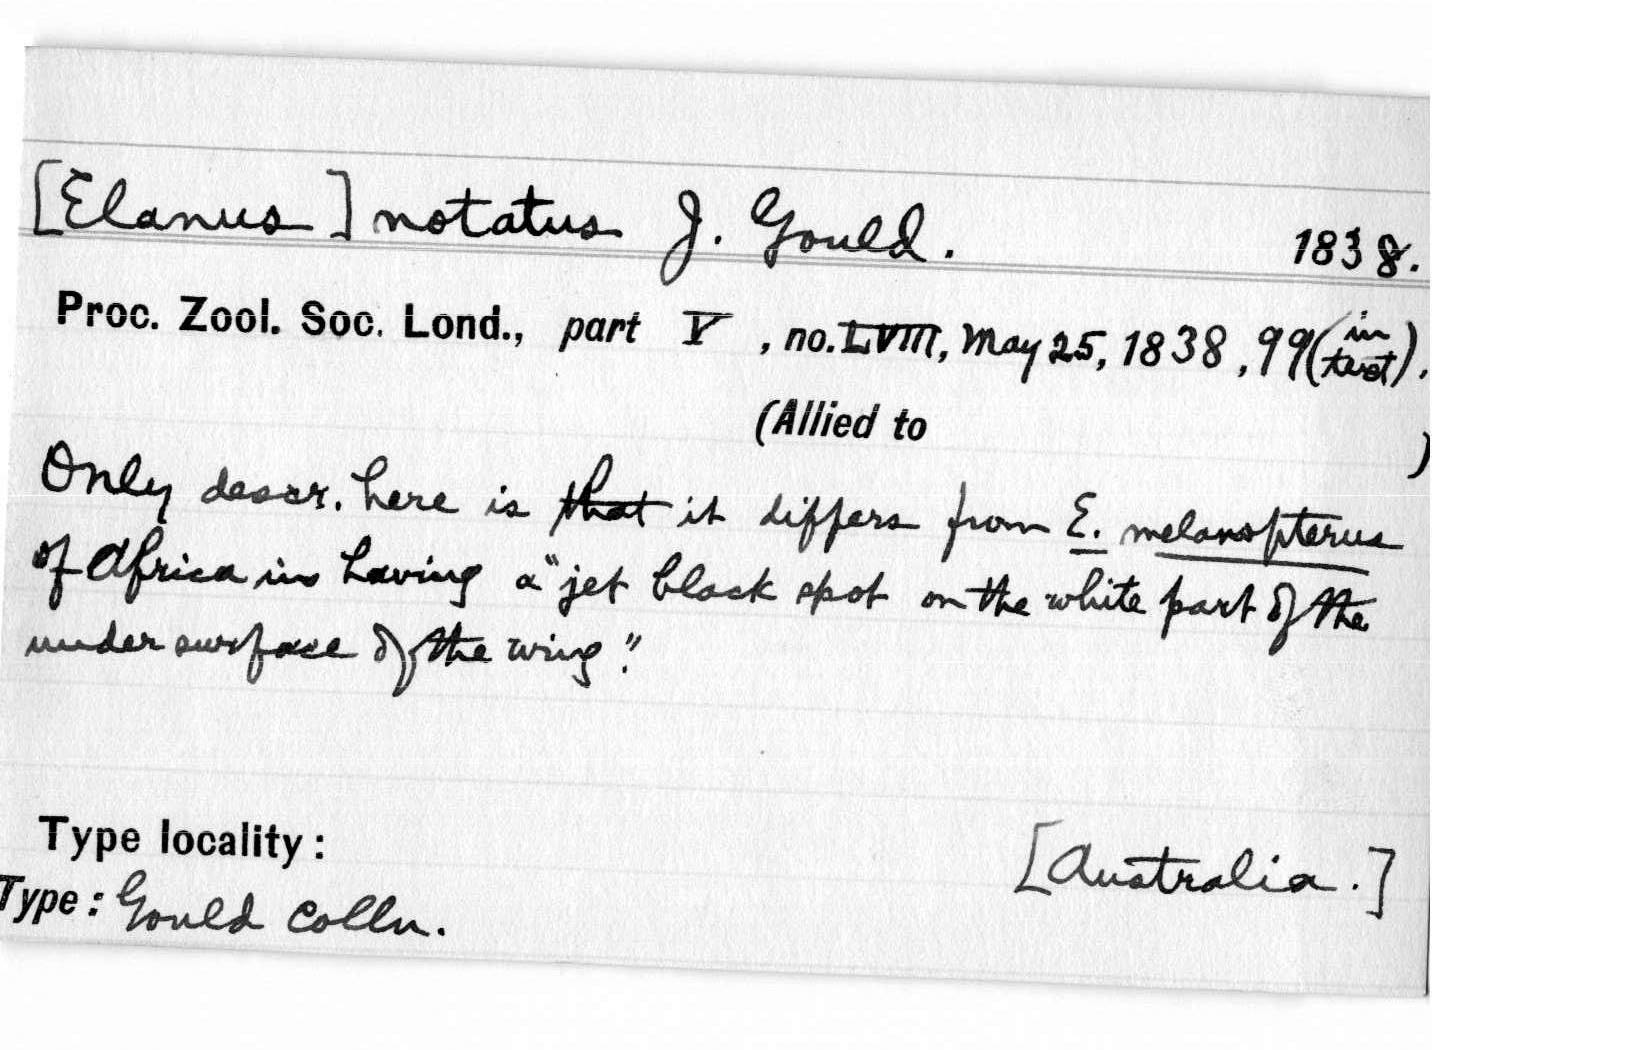 [Elanus] notatus J. Gould. 1838.
Proc. Zool. Soc. Lond., part V, no. LVIII, May 25, 1838, 99 (in text).
(Allied to )
Only descr. here is that it differs from E. melanopterus
of Africa in having a "jet black spot on the white part of the
under surface of the wing."
Type locality: [Australia.]
Type: Gould colln.